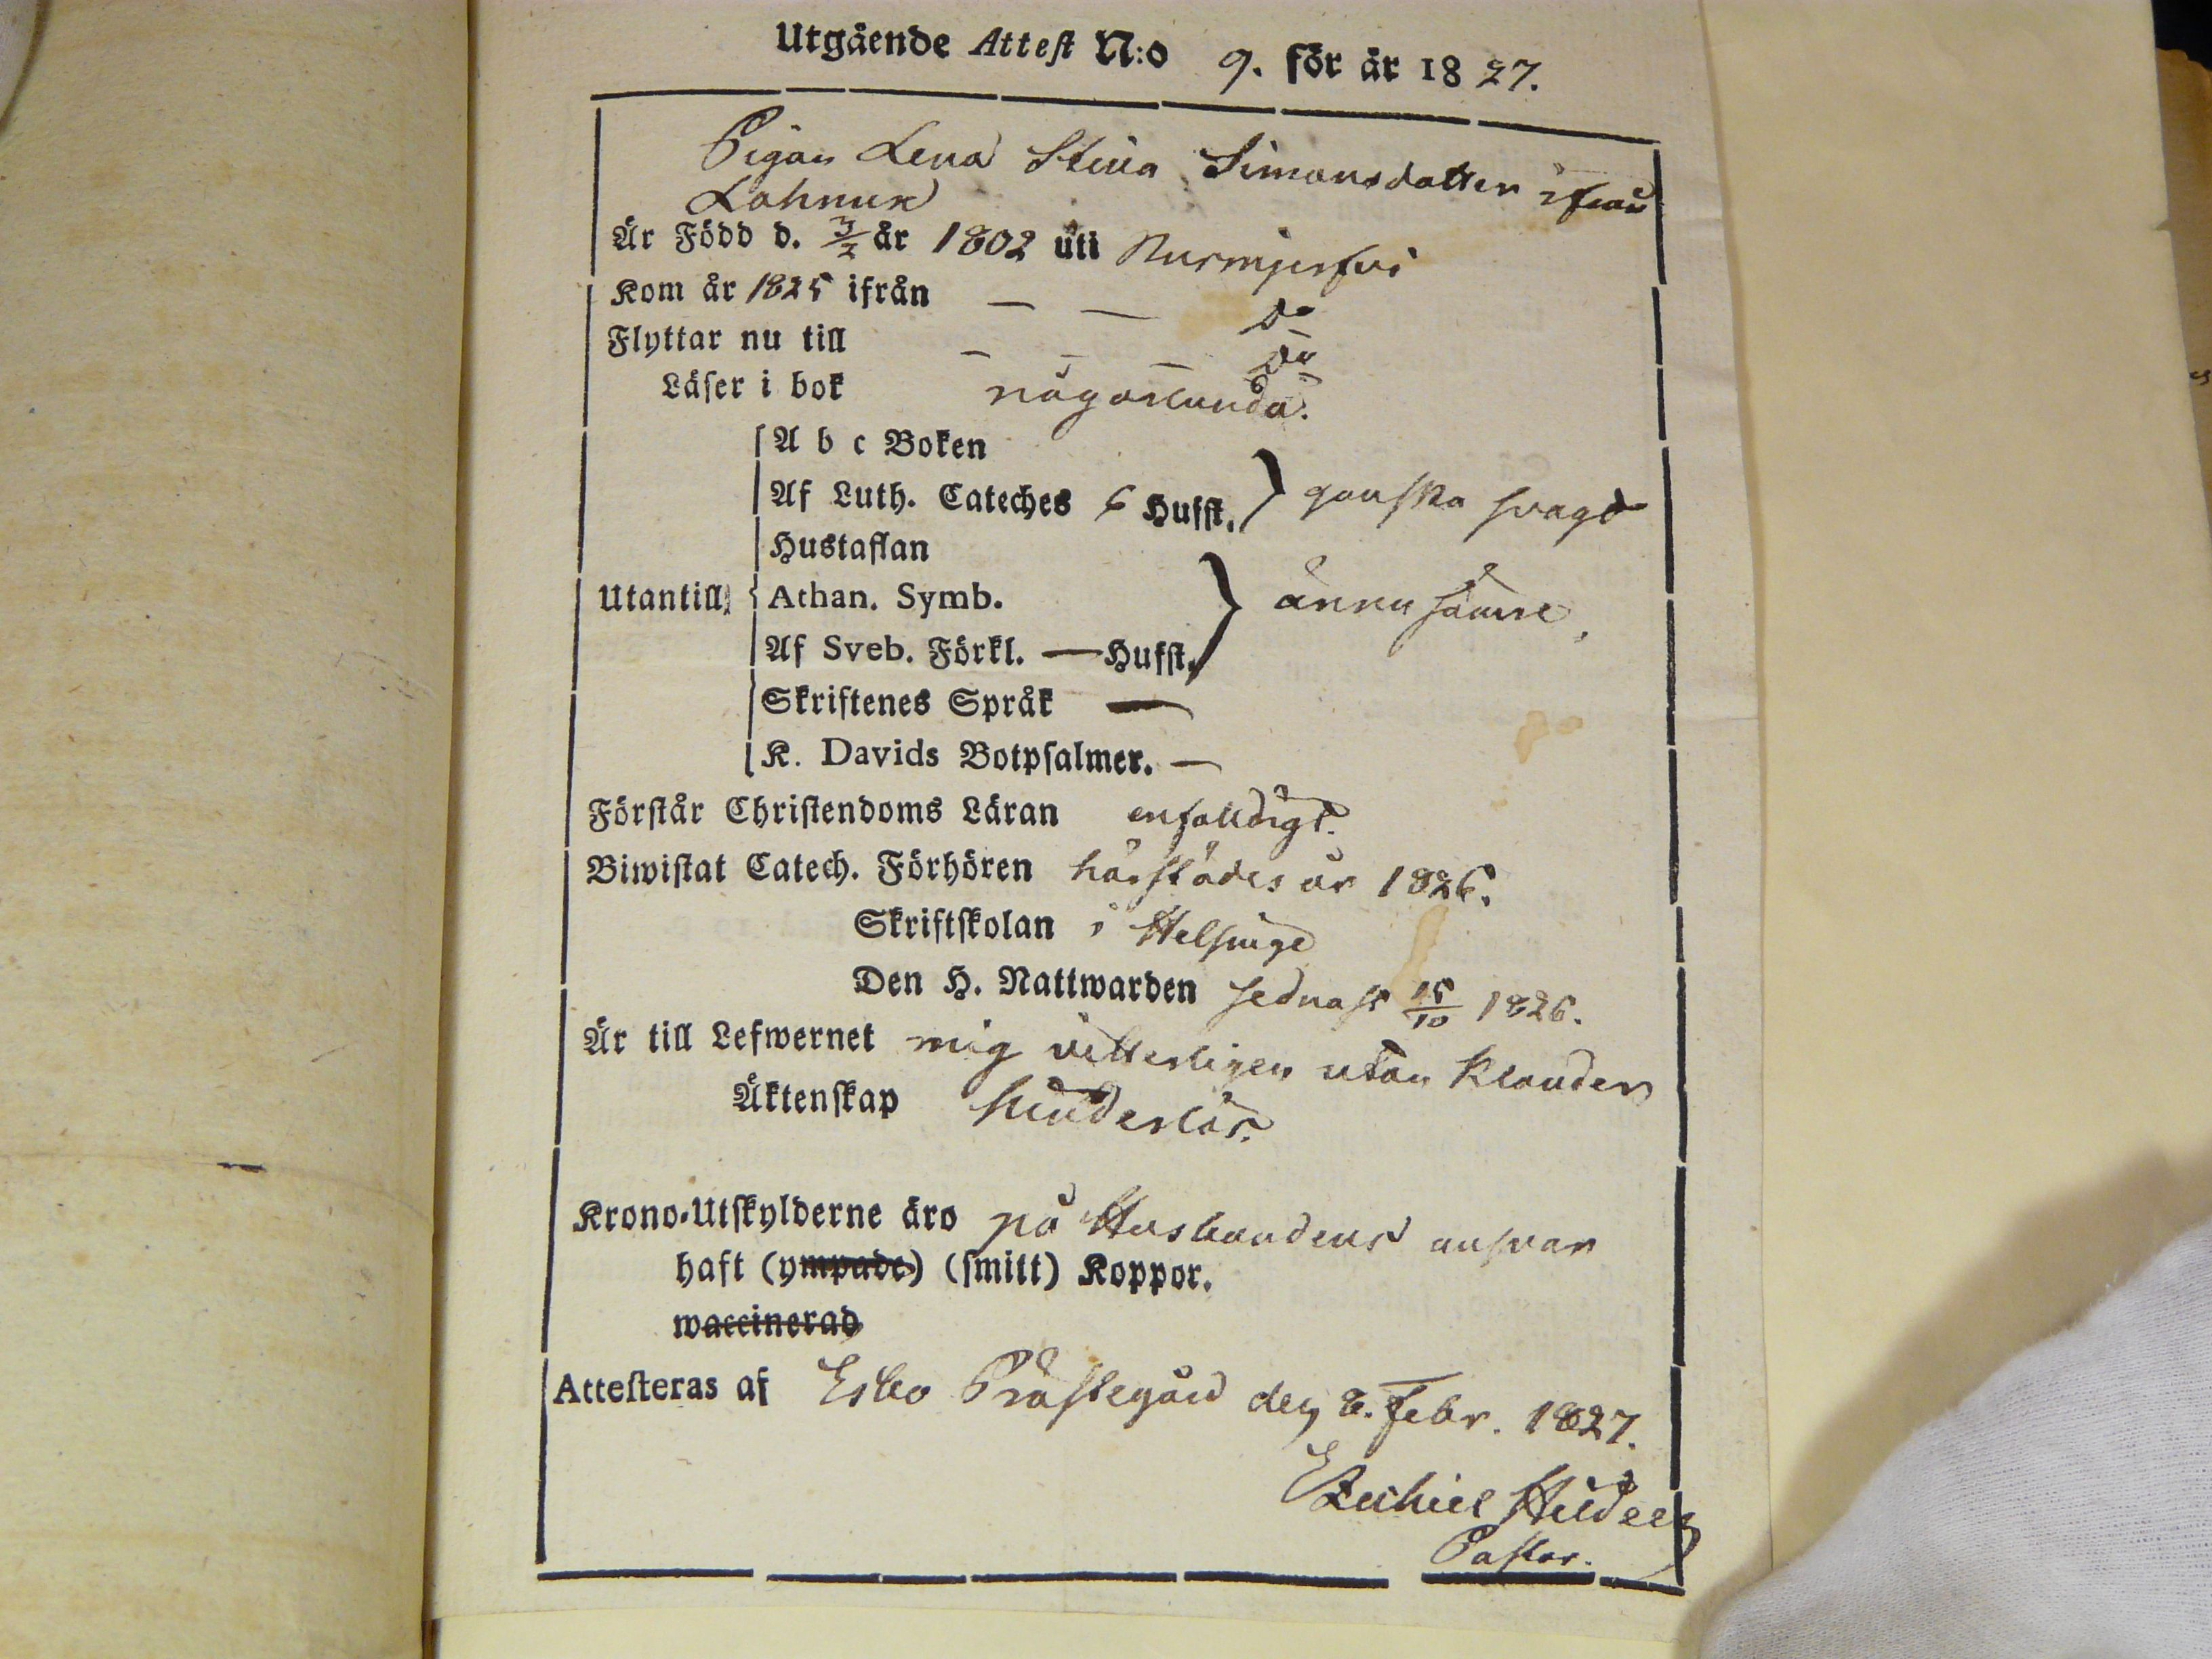 Utgående Attest N:o 9. för år 1827.
Pigan Lena Stina Simonsdotter ifrån
Lahnus
Är Född d. 3/2 år 1802 uti Nurmijerfvi
Kom år 1825 ifrån — — do
Flyttar nu till — — — do
Läser i bok någorlunda.
A b c Boken
Af Luth. Cateches 6 Hufst. } ganska svagt
Hustaflan
Utantill { Athan. Symb. } ännu sämre,
Af Sveb. Förkl. — Hufst.
Skriftenes Språk —
K. Davids Botpsalmer. —
Förstår Christendoms Läran enfalldigt.
Biwistat Catech. Förhören härstädes år 1826.
Skriftskolan i Helsinge
Den H. Nattwarden sednast 15/10 1826.
Är till Lefwernet mig vitterligen utan klander
Äktenskap hinderlös.
Krono-Utskylderne äro på Husbondens ansvar
haft (ympade) (smitt) Koppor.
waccinerad
Attesteras af Esbo Prästegård den 8. Febr. 1827.
Ezechiel Hildeen
Pastor.